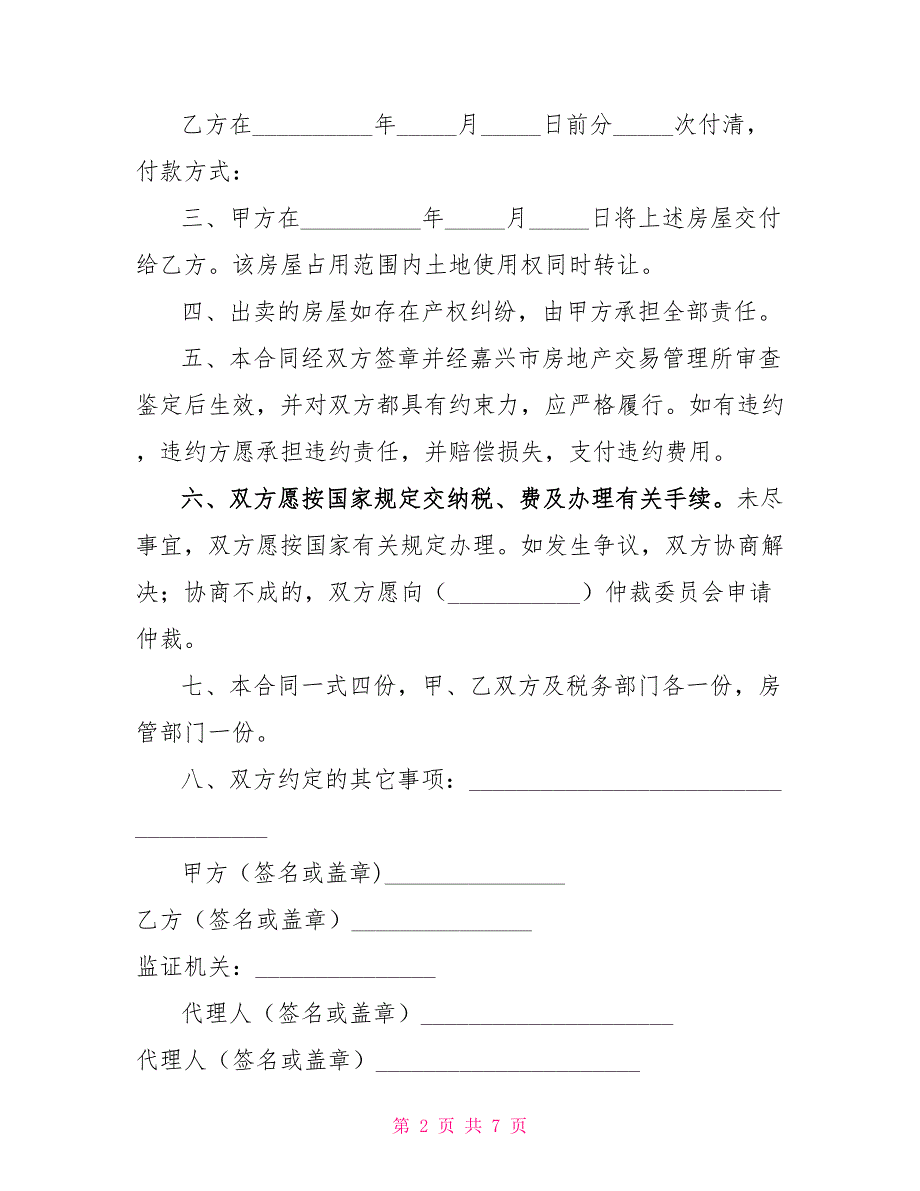 乙方在__________年____月____日前分____次付清，
付款方式：
三、甲方在__________年____月____日将上述房屋交付
给乙方。该房屋占用范围内土地使用权同时转让。
四、出卖的房屋如存在产权纠纷，由甲方承担全部责任。
五、本合同经双方签章并经嘉兴市房地产交易管理所审查
鉴定后生效，并对双方都具有约束力，应严格履行。如有违约
，违约方愿承担违约责任，并赔偿损失，支付违约费用。
六、双方愿按国家规定交纳税、费及办理有关手续。未尽
事宜，双方愿按国家有关规定办理。如发生争议，双方协商解
决；协商不成的，双方愿向（___________）仲裁委员会申请
仲裁。
七、本合同一式四份，甲、乙双方及税务部门各一份，房
管部门一份。
八、双方约定的其它事项：__________________________
___________
甲方（签名或盖章)_______________
乙方（签名或盖章）_______________
监证机关：_______________
代理人（签名或盖章）_____________________
代理人（签名或盖章）______________________
第 2 页 共 7 页